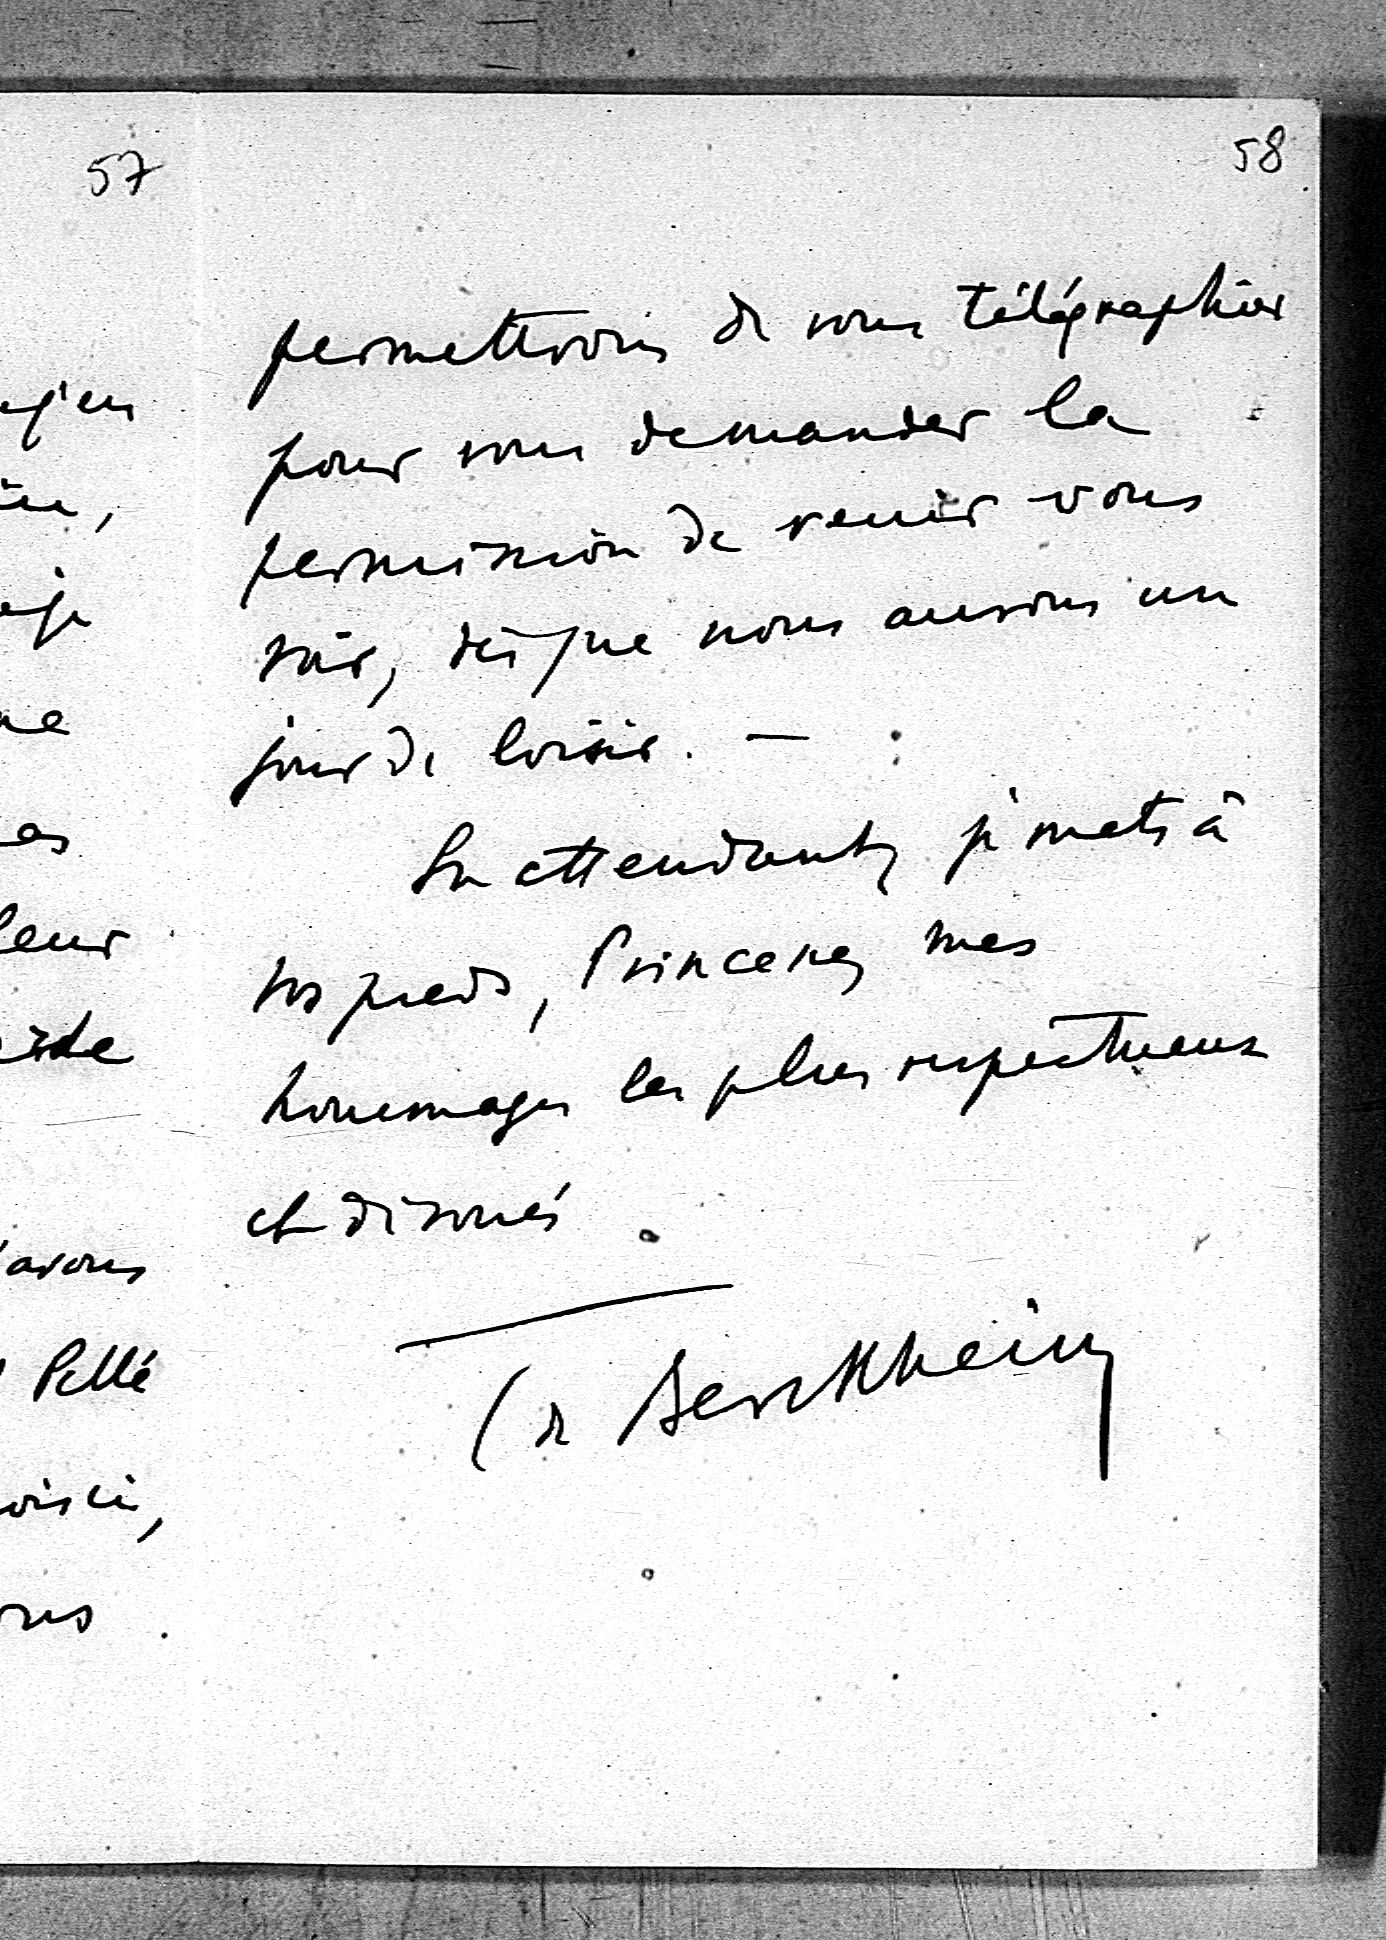 57
leur
avons
Pellé
58
permettrons de vous télégraphier
pour vous demander la
permission de venir vous
voir, dès que nous aurons un
jour de loisir. —
En attendant, je mets à
vos pieds, Princesse, mes
hommages les plus respectueux
et dévoués.
C de Berckheim